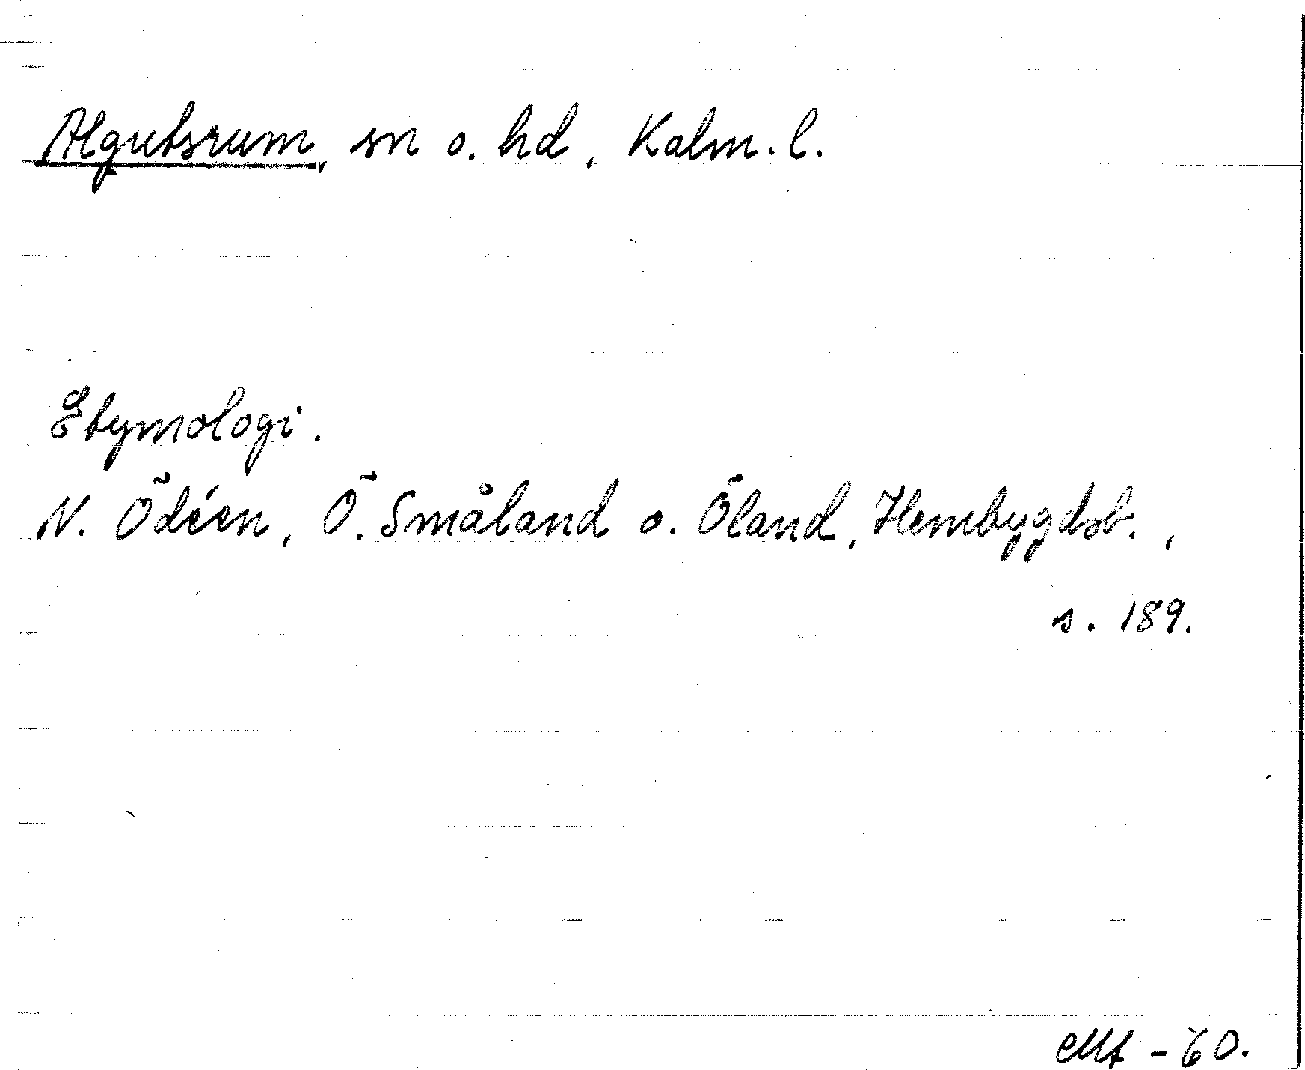 Algutsrum, sn o. hd, Kalm. l.
Etymologi.
N. Ödéen, Ö. Småland o. Öland, Hembygdsb.,
s. 189.
-60.